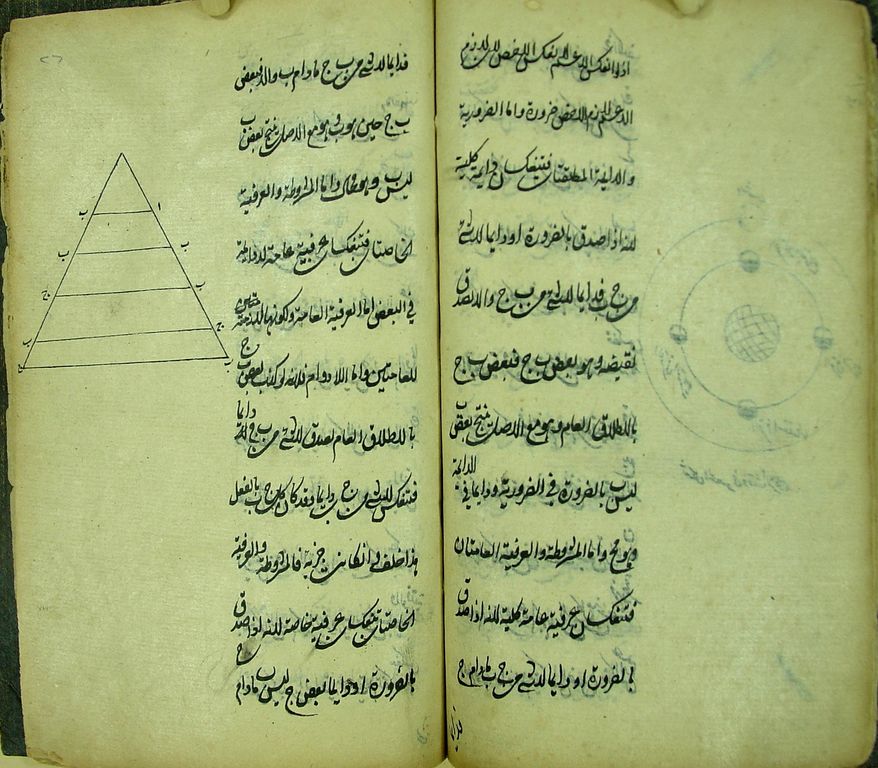 اذ لو انعكس الاعم لانعكس الاخص لان لازم
الاعم لازم الاخص ضرورة واما الضرورية
والدايمة المطلقتان فتنعكسان دايمة كلية
لانه اذا صدق بالضرورة او دايما لا شئ
من ج ب فدايما لا شئ من ب ج والا لصدق
نقيضه وهو بعض ب ج فبعض ب ج
بالاطلاق العام وهو مع الاصل ينتج بعض ب
ليس ب بالضرورة في الضرورية ودايما في الدايمة
وهو مح واما المشروطة والعرفية العامتان
فتنعكسان عرفية عامة كلية لانه اذا صدق
بالضرورة او دايما لا شئ من ج ب مادام ج
فدايما
فدايما لا شئ من ب ج مادام ب والا فبعض
ب ج حين هو ب وهو مع الاصل ينتج بعض ب
ليس ب وهو مح واما المشروطة والعرفية
الخاصتان فتنعكسان عرفية عامة لا دايمة
في البعض اما العرفية العامة فلكونها لازمة
للعامتين واما اللادوام فلانه لو كذب بعض ب ج
بالاطلاق العام لصدق لا شئ من ب ج دايما
فتنعكس لا شئ من ج ب دايما وقد كان كل ج ب بالفعل
هذا خلف وان كانت جزية فالمشروطة والعرفية
الخاصتان تنعكسان عرفية خاصة لانه اذا صدق
بالضرورة او دايما بعض ج ليس ب مادام ج
ب
ا
ب
ب
ج
ب
ب
ج
ب